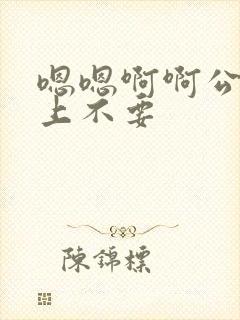 嗯嗯啊啊公
上不要
陳錦標